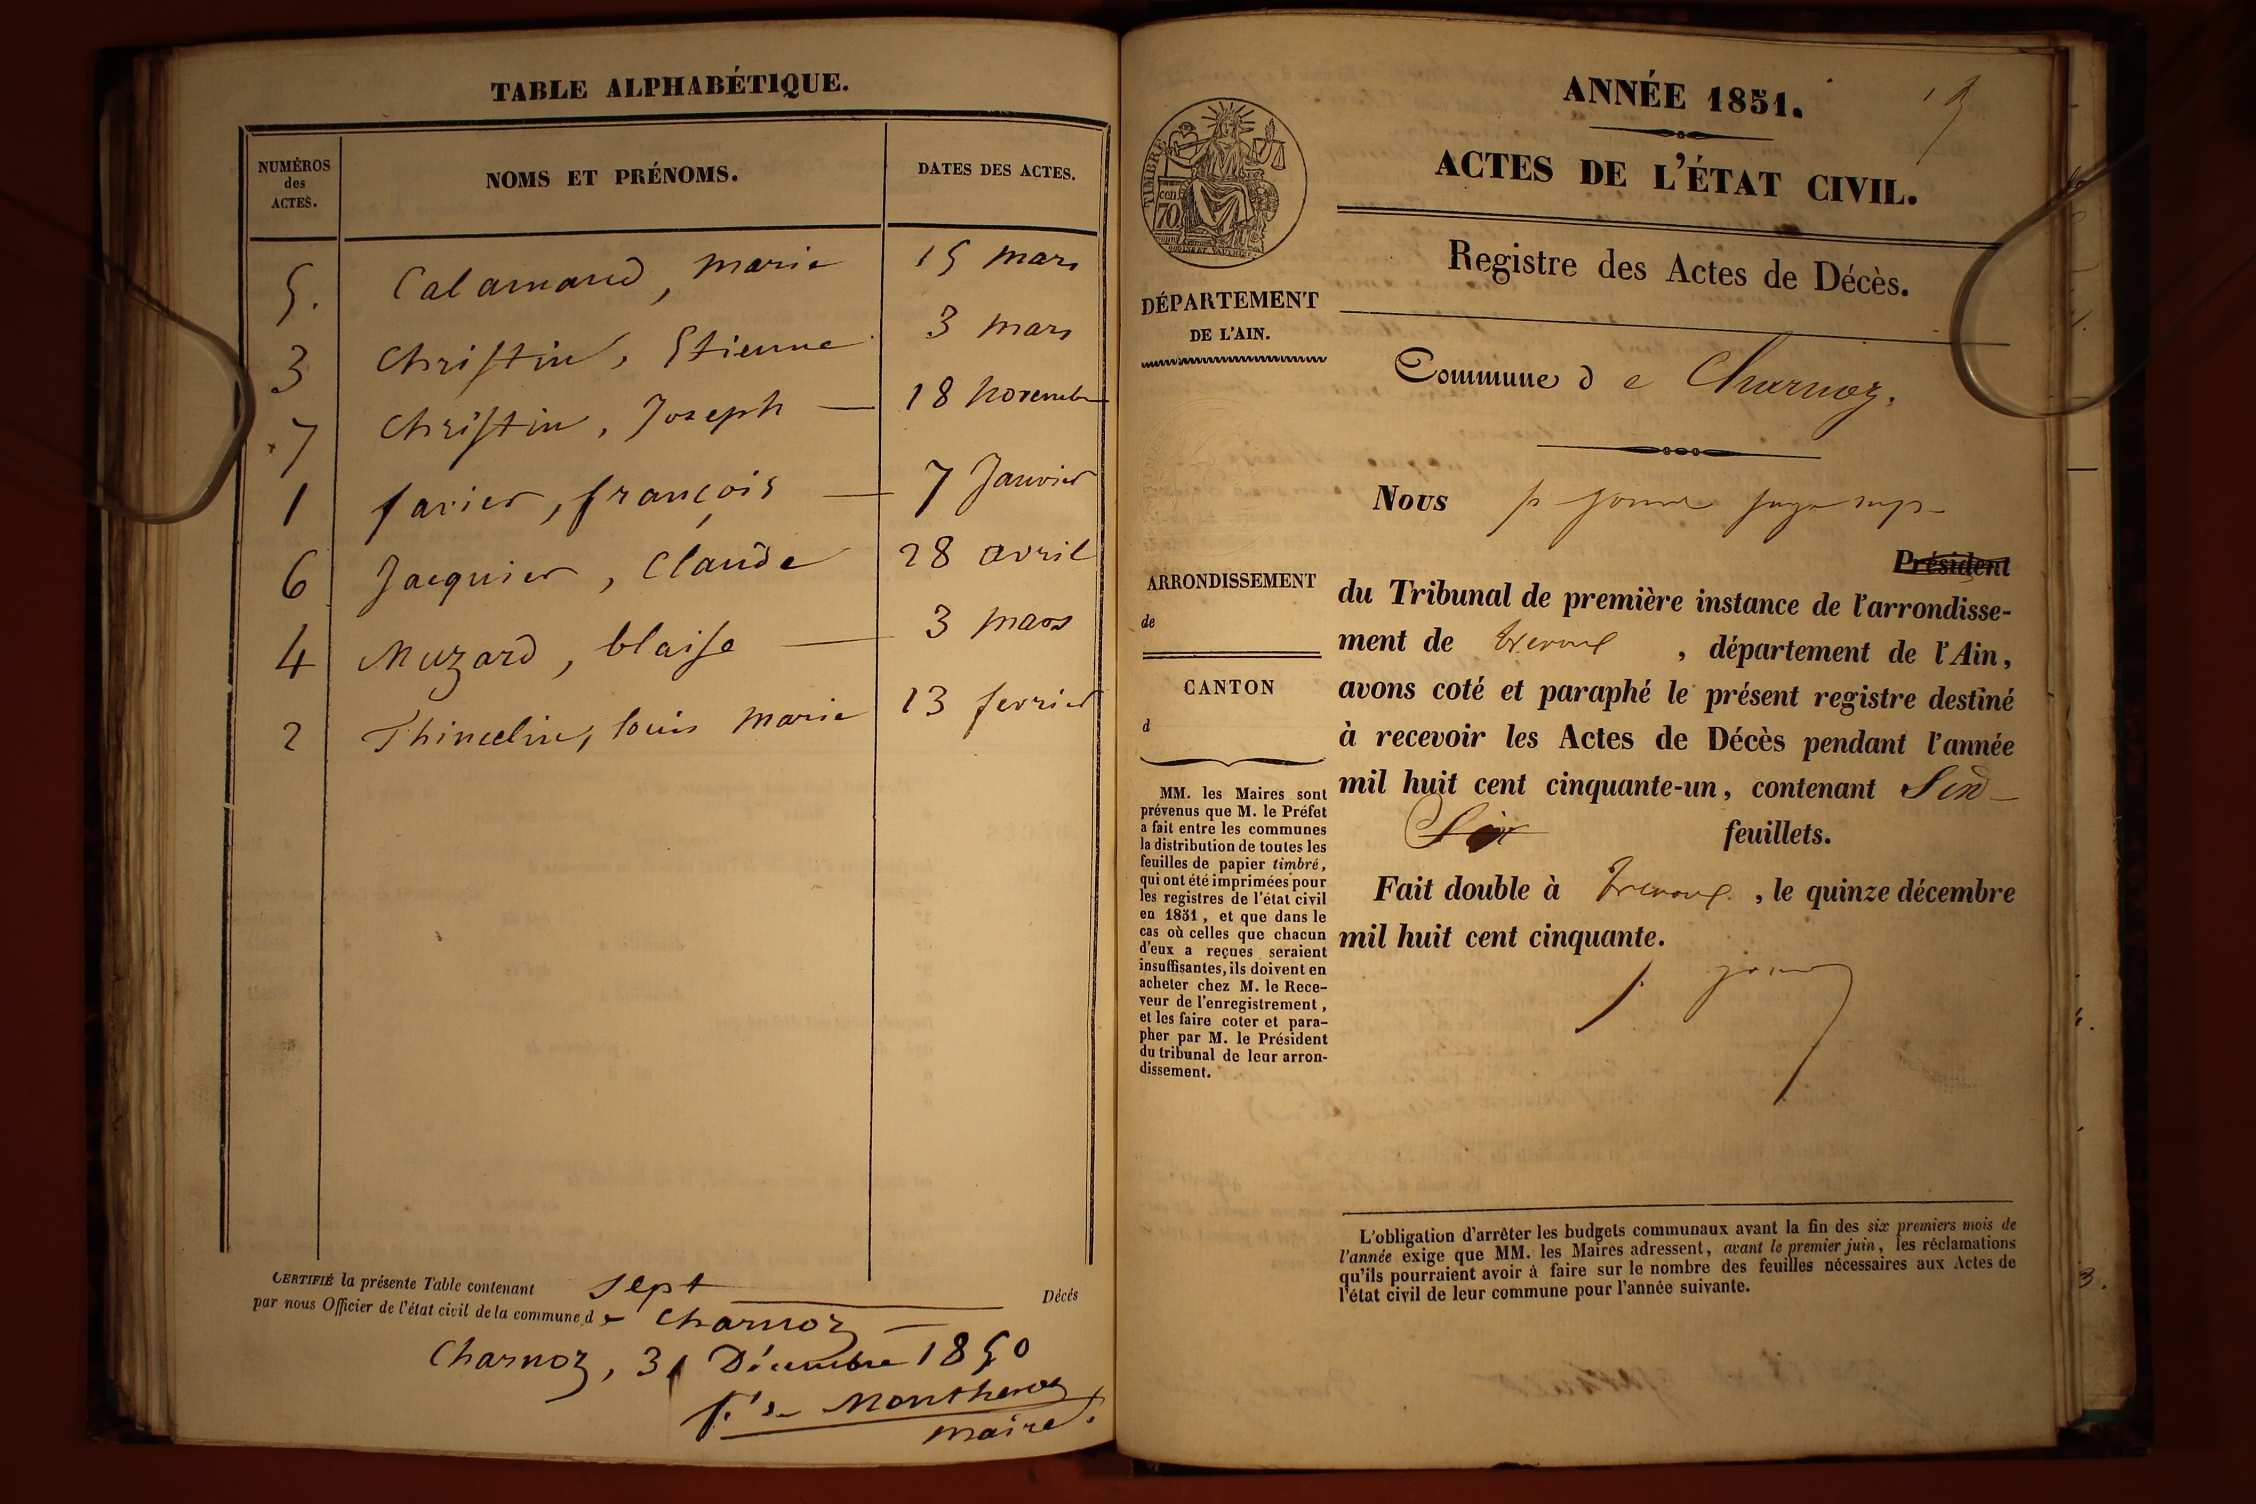 TABLE ALPHABÉTIQUE.
NUMÉROS des ACTES. NOMS ET PRÉNOMS. DATES DES ACTES.
5. Calamand, marie 15 mars
3 Christin, Etienne 3 mars
7 Christin, Joseph — 18 novembre
1 farier, françois — 7 Janvier
6 Jacquier, Claude 28 avril
4 Muzard, blaise — 3 mars
2 Thimelin, louis marie 13 fevrier
CERTIFIÉ la présente Table contenant sept Décés
par nous Officier de l'état civil de la commune de Charnoz
Charnoz, 31 Décembre 1850
Montherot
maire.
ANNÉE 1851.
ACTES DE L'ÉTAT CIVIL.
Registre des Actes de Décès.
Commune de Charnoz.
TIMBRE
70
DÉPARTEMENT
DE L'AIN.
ARRONDISSEMENT
de
CANTON
d
MM. les Maires sont
prévenus que M. le Préfet
a fait entre les communes
la distribution de toutes les
feuilles de papier timbré,
qui ont été imprimées pour
les registres de l'état civil
en 1851, et que dans le
cas où celles que chacun
d'eux a reçues seraient
insuffisantes, ils doivent en
acheter chez M. le Rece-
veur de l'enregistrement,
et les faire coter et para-
pher par M. le Président
du tribunal de leur arron-
dissement.
Nous
Président
du Tribunal de première instance de l'arrondisse-
ment de trevoux, département de l'Ain,
avons coté et paraphé le présent registre destiné
à recevoir les Actes de Décès pendant l'année
mil huit cent cinquante-un, contenant
Six feuillets.
Fait double à trevoux, le quinze décembre
mil huit cent cinquante.
L'obligation d'arrêter les budgets communaux avant la fin des six premiers mois de
l'année exige que MM. les Maires adressent, avant le premier juin, les réclamations
qu'ils pourraient avoir à faire sur le nombre des feuilles nécessaires aux Actes de
l'état civil de leur commune pour l'année suivante.